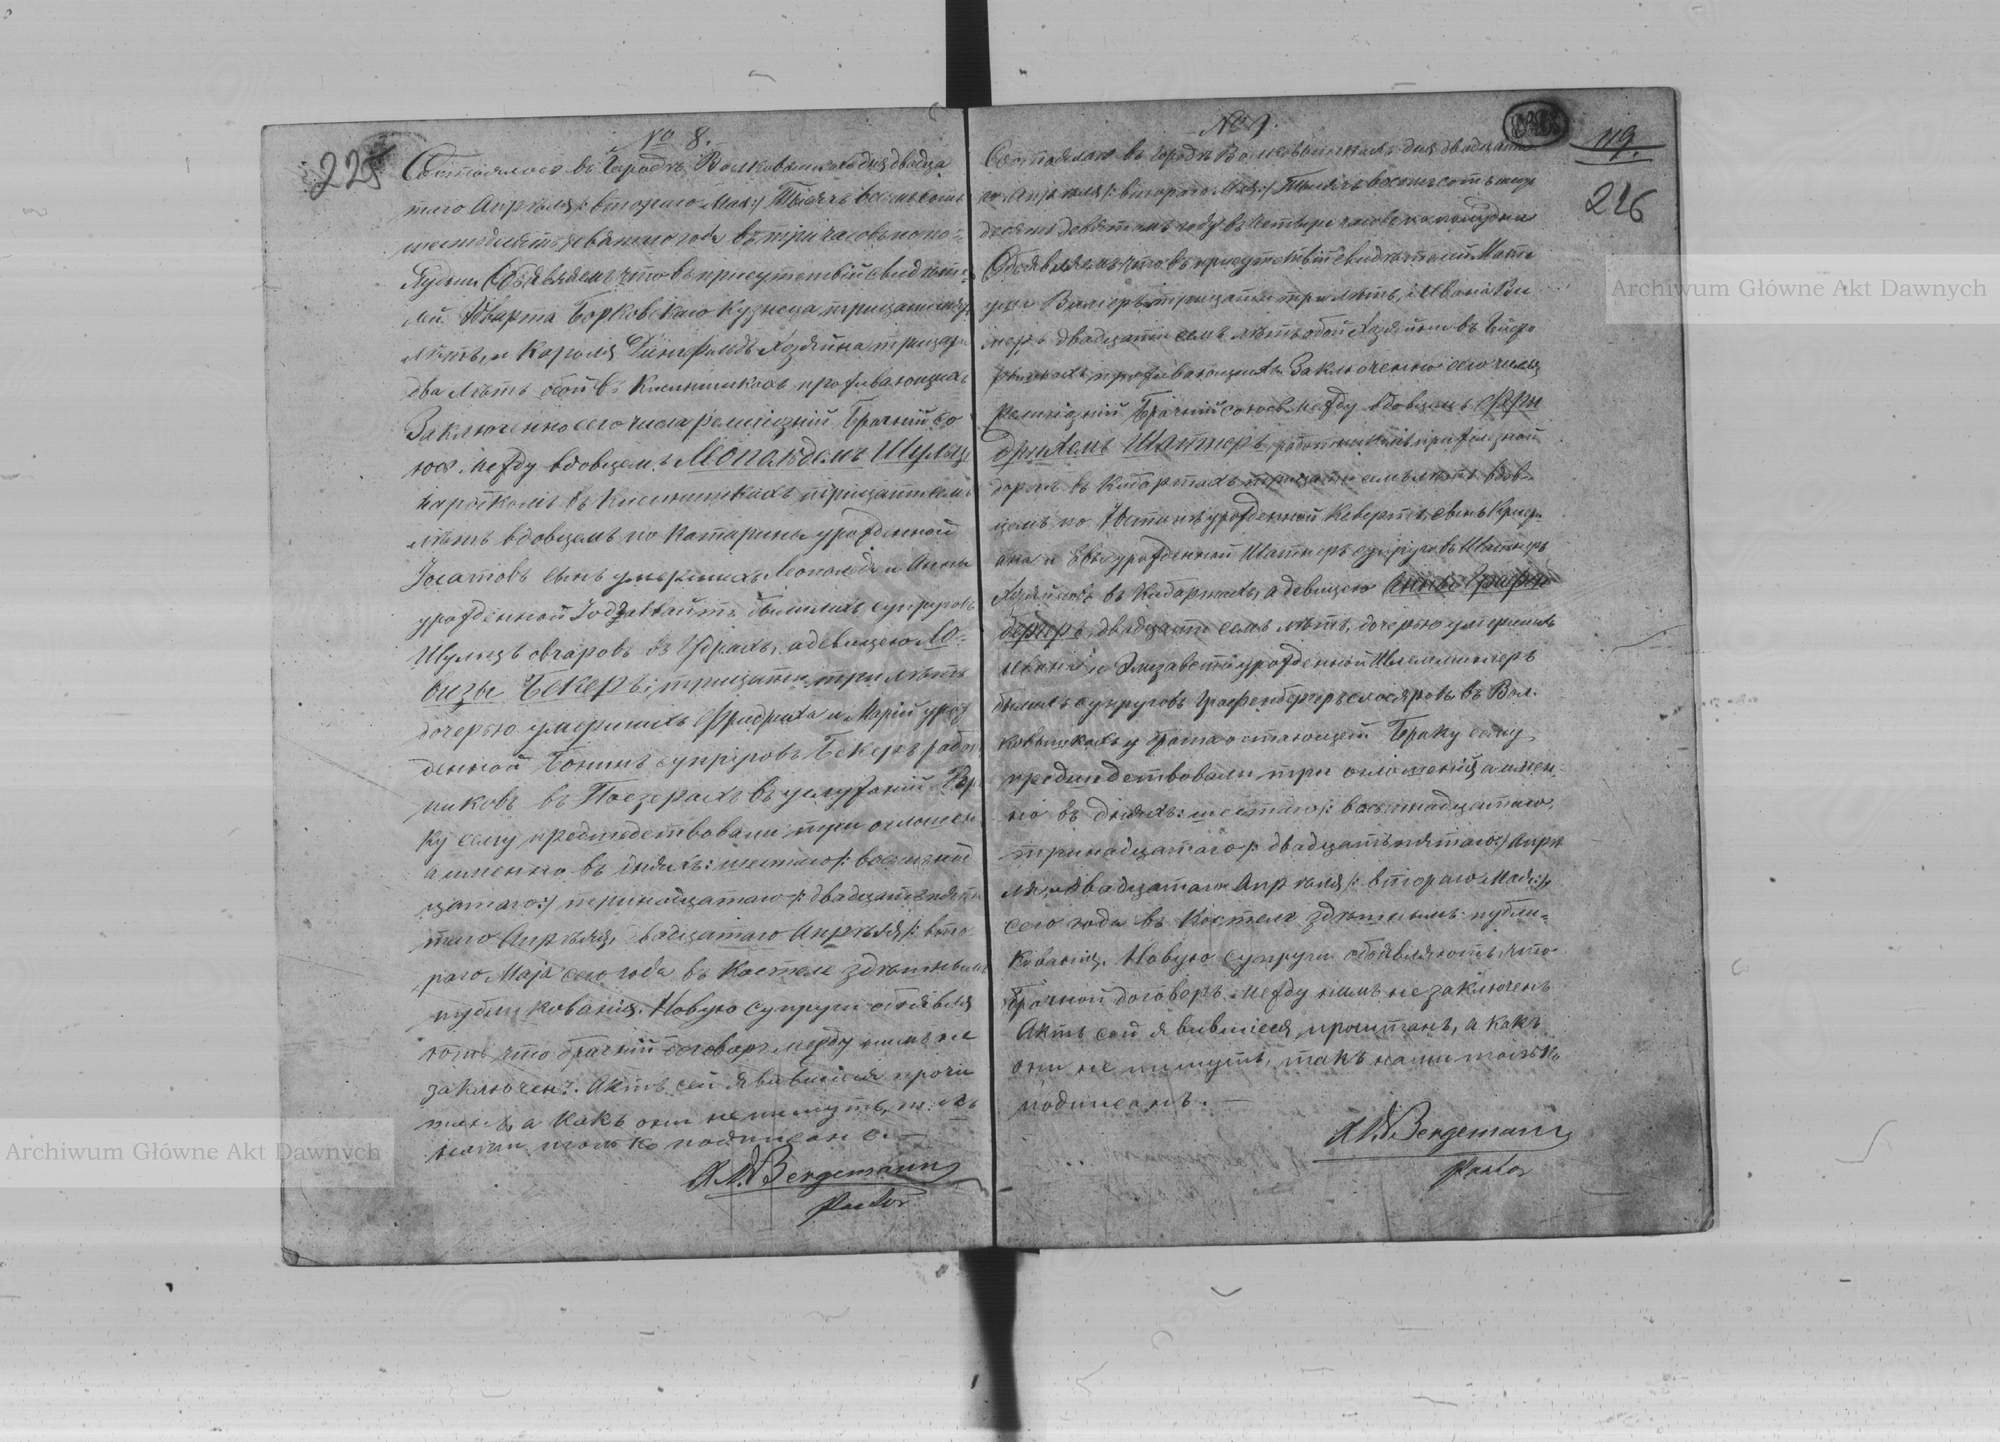 225
№ 8.
Состоялось въ Городѣ Волковышкахъ дня двадца
таго Апрѣля /: втораго Мая :/ Тысяча восемьсотъ
шестьдесятъ девятаго года въ три часовъ по по-
лудни. Объявляемъ что въ присутствіи свидѣте-
лей Эдварта Борковскаго Кузнеца тридцати
лѣтъ, и Кароля Хозяйна тридцать
два лѣтъ обой въ проживающихъ
Заключенно сего числа религіозній Брачній со
юзъ между вдовцемъ Леопольдемъ Шульцъ
въ тридцати семъ
лѣтъ вдовцемъ по Катарины урожденной
сынъ умершихъ Леопольда и Анны
урожденной бывшихъ супруговъ
Шульцъ овчаровъ въ а девицею Ло-
визы Бекеръ, тридцати три лѣтъ
дочерью умершихъ Фридриха и Маріи урож
денной супруговъ Бекеръ работ
никовъ въ Поезерахъ въ услуженій
ку сему предшедствовали три оглошен
а именно въ дняхъ: шестаго /: восемнад
цатаго :/ тринадцатаго /: двадцать пя
таго Апрѣля, двадцатаго Апрѣля /: вто-
раго Маја сего года въ Костеле здѣшнымъ
публикованія. Новую супруги объявля
ютъ что брачній договоръ между нимъ не
заключенъ. Актъ сей явившіеся прочи
танъ, а какъ они не пишутъ,
нами только подписанъ. —
Bergemann
Pastor
№ 9.
119.
226
Состоялось въ Городѣ Волковышкахъ дня двадцата
го Апрѣля /: втораго Мая :/ Тысяча восемьсотъ шест
десятъ девятомъ году въ четыри часовъ по полудни
Объявляемъ что въ присутствій свидѣтелей
тридцати три лѣтъ, и Ивана
двадцати семъ лѣтъ обой Хозяйновъ въ
проживающихъ. Заключенно сего числа
религіозній Брачній союзъ между вдовцемъ Фри
дрихемъ Шатнеръ, работникомъ при желѣзной
дорогѣ въ Кибартахъ тридцати семъ лѣтъ вдов-
цемъ по урожденной сынъ
и Эвы урожденной Шатнеръ супруговъ Шатнеръ
Хозяйновъ въ Кибартахъ, а девицею Анною Графен
бергеръ, двадцати семъ лѣтъ, дочерью умершихъ
и Элизаветы урожденной
бывшихъ супруговъ Графенбергеръ слосяровъ въ Вол-
ковышкахъ у брата остающей Браку сему
предшедствовали три оглошенія а имен-
но въ дняхъ: шестаго /: восемнадцатаго,
тринадцатаго /: двадцать пятаго :/ Апрѣ
ля, двадцатаго Апрѣля /: втораго Мая :/
сего года въ Костеле здѣшнымъ публи-
кованія. Новую супруги объявляютъ что
брачной договоръ между нимъ не заключенъ
Актъ сей явившіеся прочитанъ, а какъ
они не пишутъ, такъ нами только
подписанъ. —
Bergemann
Pastor
Archiwum Główne Akt Dawnych
Archiwum Główne Akt Dawnych